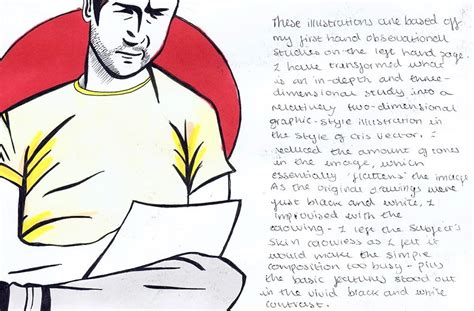 These illustrations are based off
my first hand observational
studies on the left hand page.
I have transformed what
is an in-depth and three-
dimensional study into a
relatively two-dimensional
graphic-style illustration in
the style of cris vector. I
reduced the amount of tones
in the image, which
essentially 'flattens' the image.
As the original drawings were
just black and white, I
improvised with the
colouring - I left the subject's
skin colourless as I felt it
would make the simple
composition too busy - plus
the basic features stood out
in the vivid black and white
contrast.